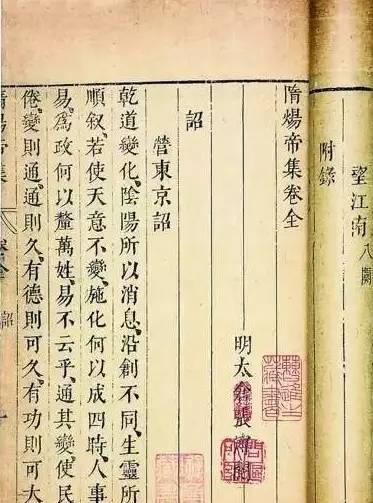 望江南八闋
附錄
隋煬帝集卷全
明太倉張溥閱
詔
營東京詔
乾道變化、陰陽所以消息、沿創不同、生靈所
順叙、若使天意不變、施化何以成四時、人事
易、爲政何以釐萬姓、易不云乎、通其變、使民
倦、變則通、通則久、有德則可久、有功則可大
隋煬帝集 卷全 詔 一